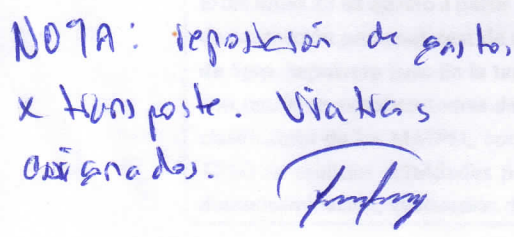 NOTA: reposición de gastos
x transporte. Viaticos
asignados.